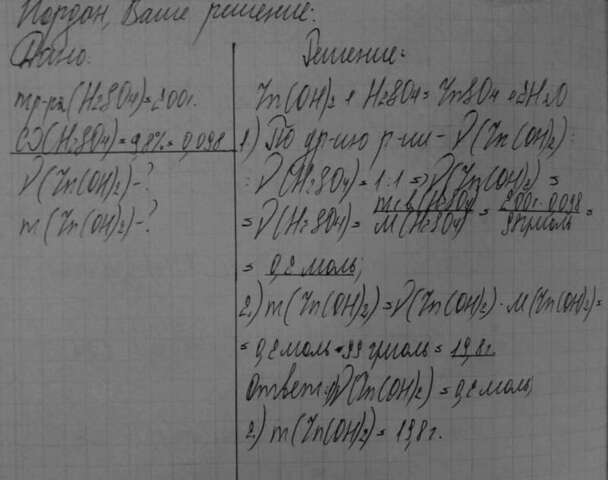 Пордан, Ваше решение:
Дано:
mр-ра(H2SO4)=200г.
ω(H2SO4)=9,8%=0,098
ν(Zn(OH)2)-?
m(Zn(OH)2)-?
Решение:
Zn(OH)2 + H2SO4 = ZnSO4 + 2H2O
1) По ур-ию р-ии - ν(Zn(OH)2):
: ν(H2SO4) = 1:1 => ν(Zn(OH)2) =
= ν(H2SO4) = mв-ва(H2SO4)/M(H2SO4) = 200г·0,098/98г/моль =
= 0,2 моль;
2) m(Zn(OH)2) = ν(Zn(OH)2) · M(Zn(OH)2) =
= 0,2 моль · 99 г/моль = 19,8г.
Ответ: 1) ν(Zn(OH)2) = 0,2 моль;
2) m(Zn(OH)2) = 19,8г.